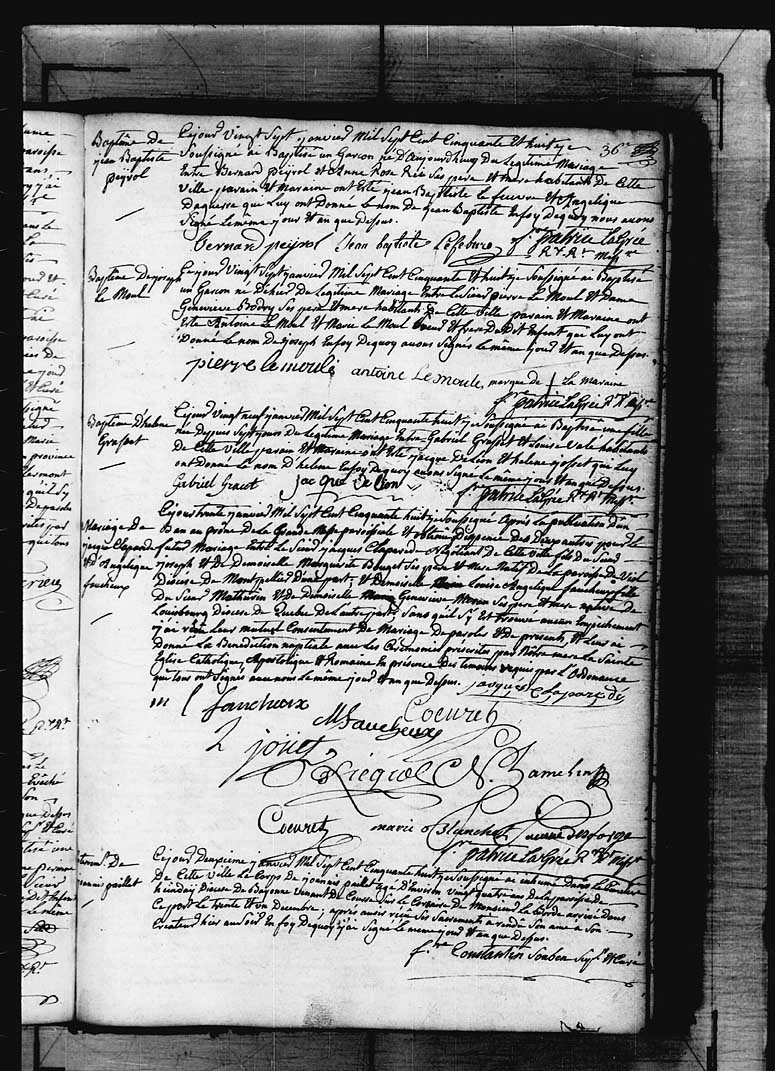 36
Baptême De
jean Baptiste
peyrol
Cejour Vingt Sept janvier Mil Sept Cent Cinquante Et huit je
Soussigné ai Baptisé un Garçon né D'Aujourd'huy Du Legitime Mariage
Entre Bernard peyrol et Anne Rose Ses pere et mere habitants De Cette
Ville parain et Maraine ont Eté jean Baptiste le feuvre et Angelique
Daguerre que Luy ont Donné Le nom De jean Baptiste En foy Dequoy nous avons
Signé Le même jour Et an que Dessus.
Bernard peyrol Jean baptiste Lefebvre f. patrice LaGrée
R. Miss.re
Baptême De joseph
le Moul
Cejour Vingt Sept janvier Mil Sept Cent Cinquante Et huit je Soussigné ai Baptisé
un Garçon né D'hier Du Legitime Mariage Entre Le Sieur pierre Le Moul Et Dame
Genevieve Bodry Ses pere et mere habitants De Cette Ville parain et Maraine ont
Eté Antoine Le Moul Et Marie Le Moul Du Dit Enfant que Luy ont
Donné Le nom De joseph En foy Dequoy avons Signés Le même jour Et an que Dessus.
pierre lemoule antoine Le moule, marque de + La maraine
f. patrice LaGrée
Baptême D'helene
Grosset
Cejour Vingt neuf janvier Mil Sept Cent Cinquante huit je Soussigné ai Baptisé une fille
née Depuis Sept jours De Legitime Mariage Entre Gabriel Grosset et Louise Vale habitants
De Cette Ville parain et Maraine ont Eté jacque DeLion et helene josset que Luy
ont Donné Le nom D'helene En foy Dequoy avons Signé Le même jour Et an que Dessus.
Gabriel Jacque DeLion f. patrice LaGrée
Mariage De
jacque Claparede
Et D'Angelique
faucheux
Cejour trente janvier Mil Sept Cent Cinquante huit je Soussigné Après La publication D'un
Ban au prône De La Grande Messe paroissiale et obtenu Dispence Des Deux autres pour le
futur Mariage Entre Le Sieur jacques Claparede Négotiant De Cette Ville fils Du Sieur
joseph Et De Demoiselle Marguerite Ses pere et Mere Natif De La paroisse De
Diocese De Montpellier D'une part, et Demoiselle Louise Angelique faucheux fille
Du Sieur Mathurin Et De Demoiselle Genevieve Ses pere et mere native De
Louisbourg Diocese De Quebec De L'autre part, Sans qu'il S'y Est trouvé aucun Empêchement
j'ai reçû Leur mutuel Consentement De Mariage De paroles Et De presents, Et Leur ai
Donné La Benediction nuptiale avec Les Ceremonies prescrites par Notre mere La Sainte
Eglise Catholique, Apostolique Et Romaine En presence Des temoins requis par L'Ordonnance
que tous ont Signés avec nous Le même jour Et an que Dessus. jacques claparede
faucheux
Mfaucheux Coeuret
Coeuret marie Blanchet
f. patrice LaGrée
De
joannis paillet
Cejour Deuxieme janvier Mil Sept Cent Cinquante huit je Soussigné ai inhumé Dans le
De Cette Ville Le Corps De joannis paillet agé D'Environ Vingt quatre ans De La paroisse De
Diocese De Bayonne Venant De Course Sur Le Corsaire De Monsieur La borde arrivé Dans
Ce port Le trente et un Decembre, après avoir reçû Ses Sacrements a rendu Son ame à Son
Createur hier au Soir En foy Dequoy j'ai Signé Le même jour Et an que Dessus.
f. Constantin